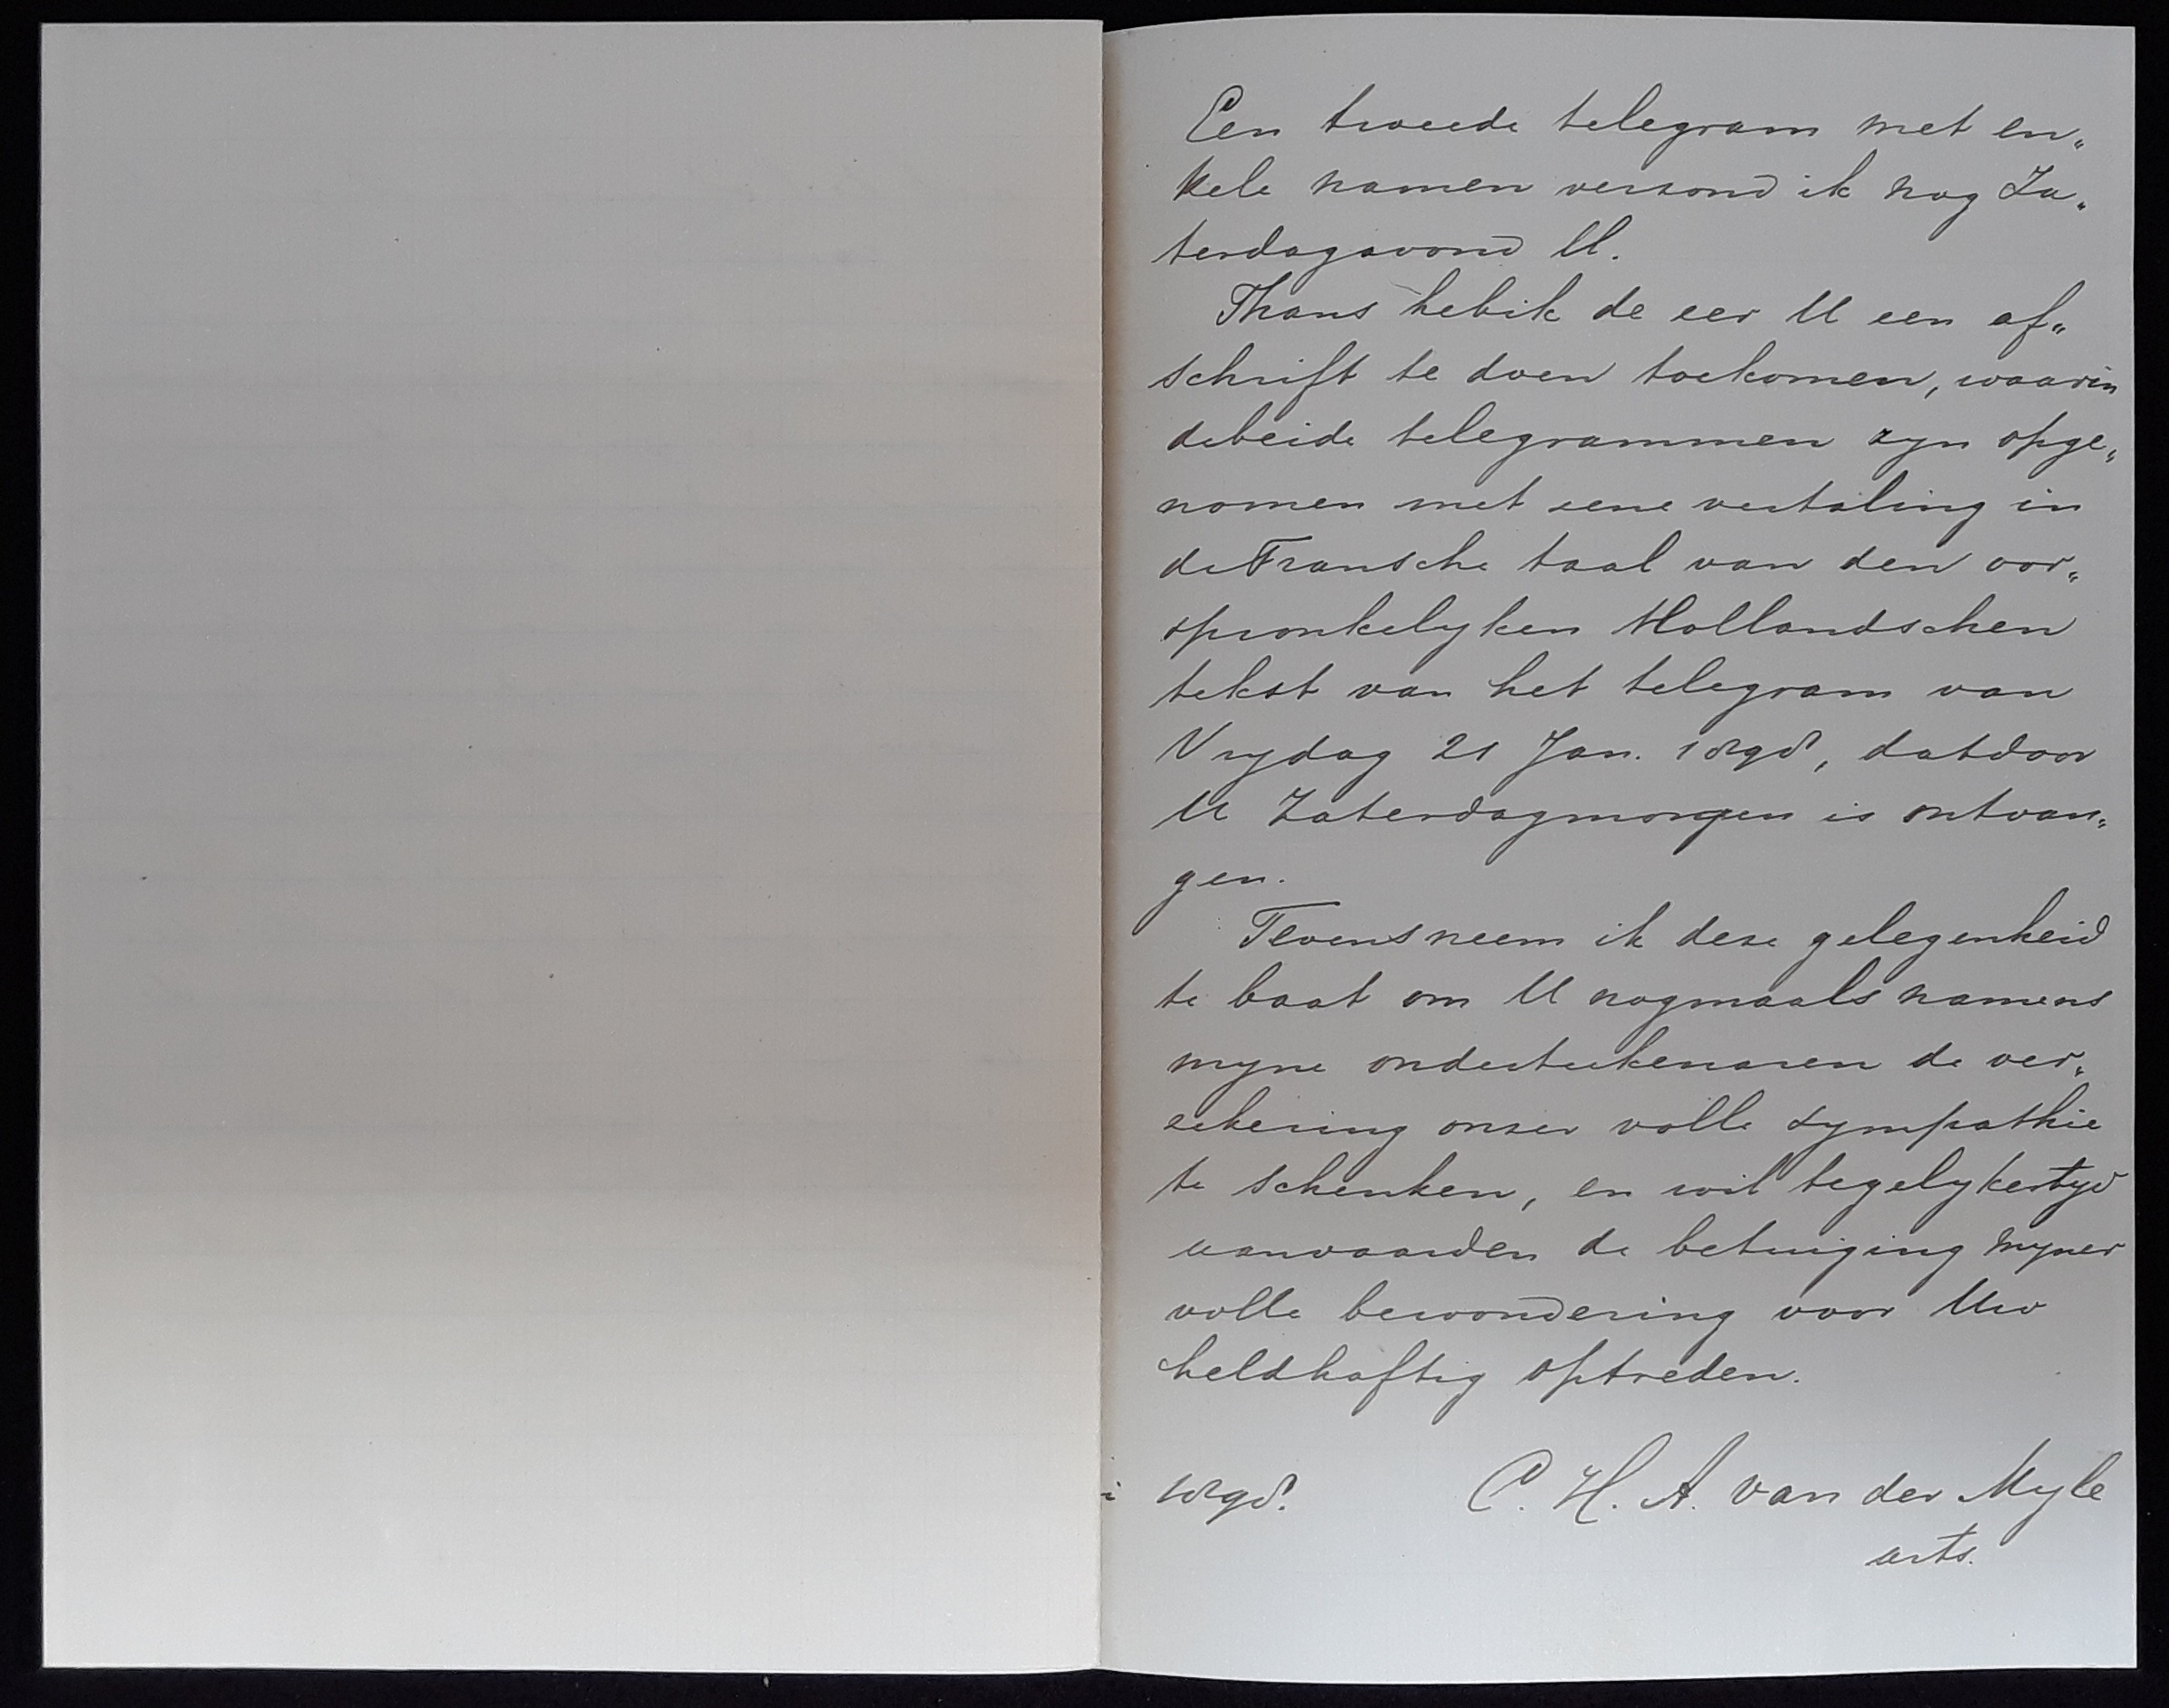 Een tweede telegram met en„
kele namen verzond ik nog Za„
terdagavond ll.
Thans heb ik de eer U een af„
schrift te doen toekomen, waarin
de beide telegrammen zyn opge„
nomen met eene vertaling in
de Fransche taal van den oor„
spronkelyken Hollandschen
tekst van het telegram van
Vrydag 21 Jan. 1898, dat door
U Zaterdagmorgen is ontvan„
gen.
Tevens neem ik deze gelegenheid
te baat om U nogmaals namens
myne onderteekenaren de ver„
zekering onzer volle sympathie
te schenken, en wil tegelykertyd
aanvaarden de betuiging myner
volle bewondering voor Uw
heldhaftig optreden.
1898. C. H. A. van der Myle
arts.